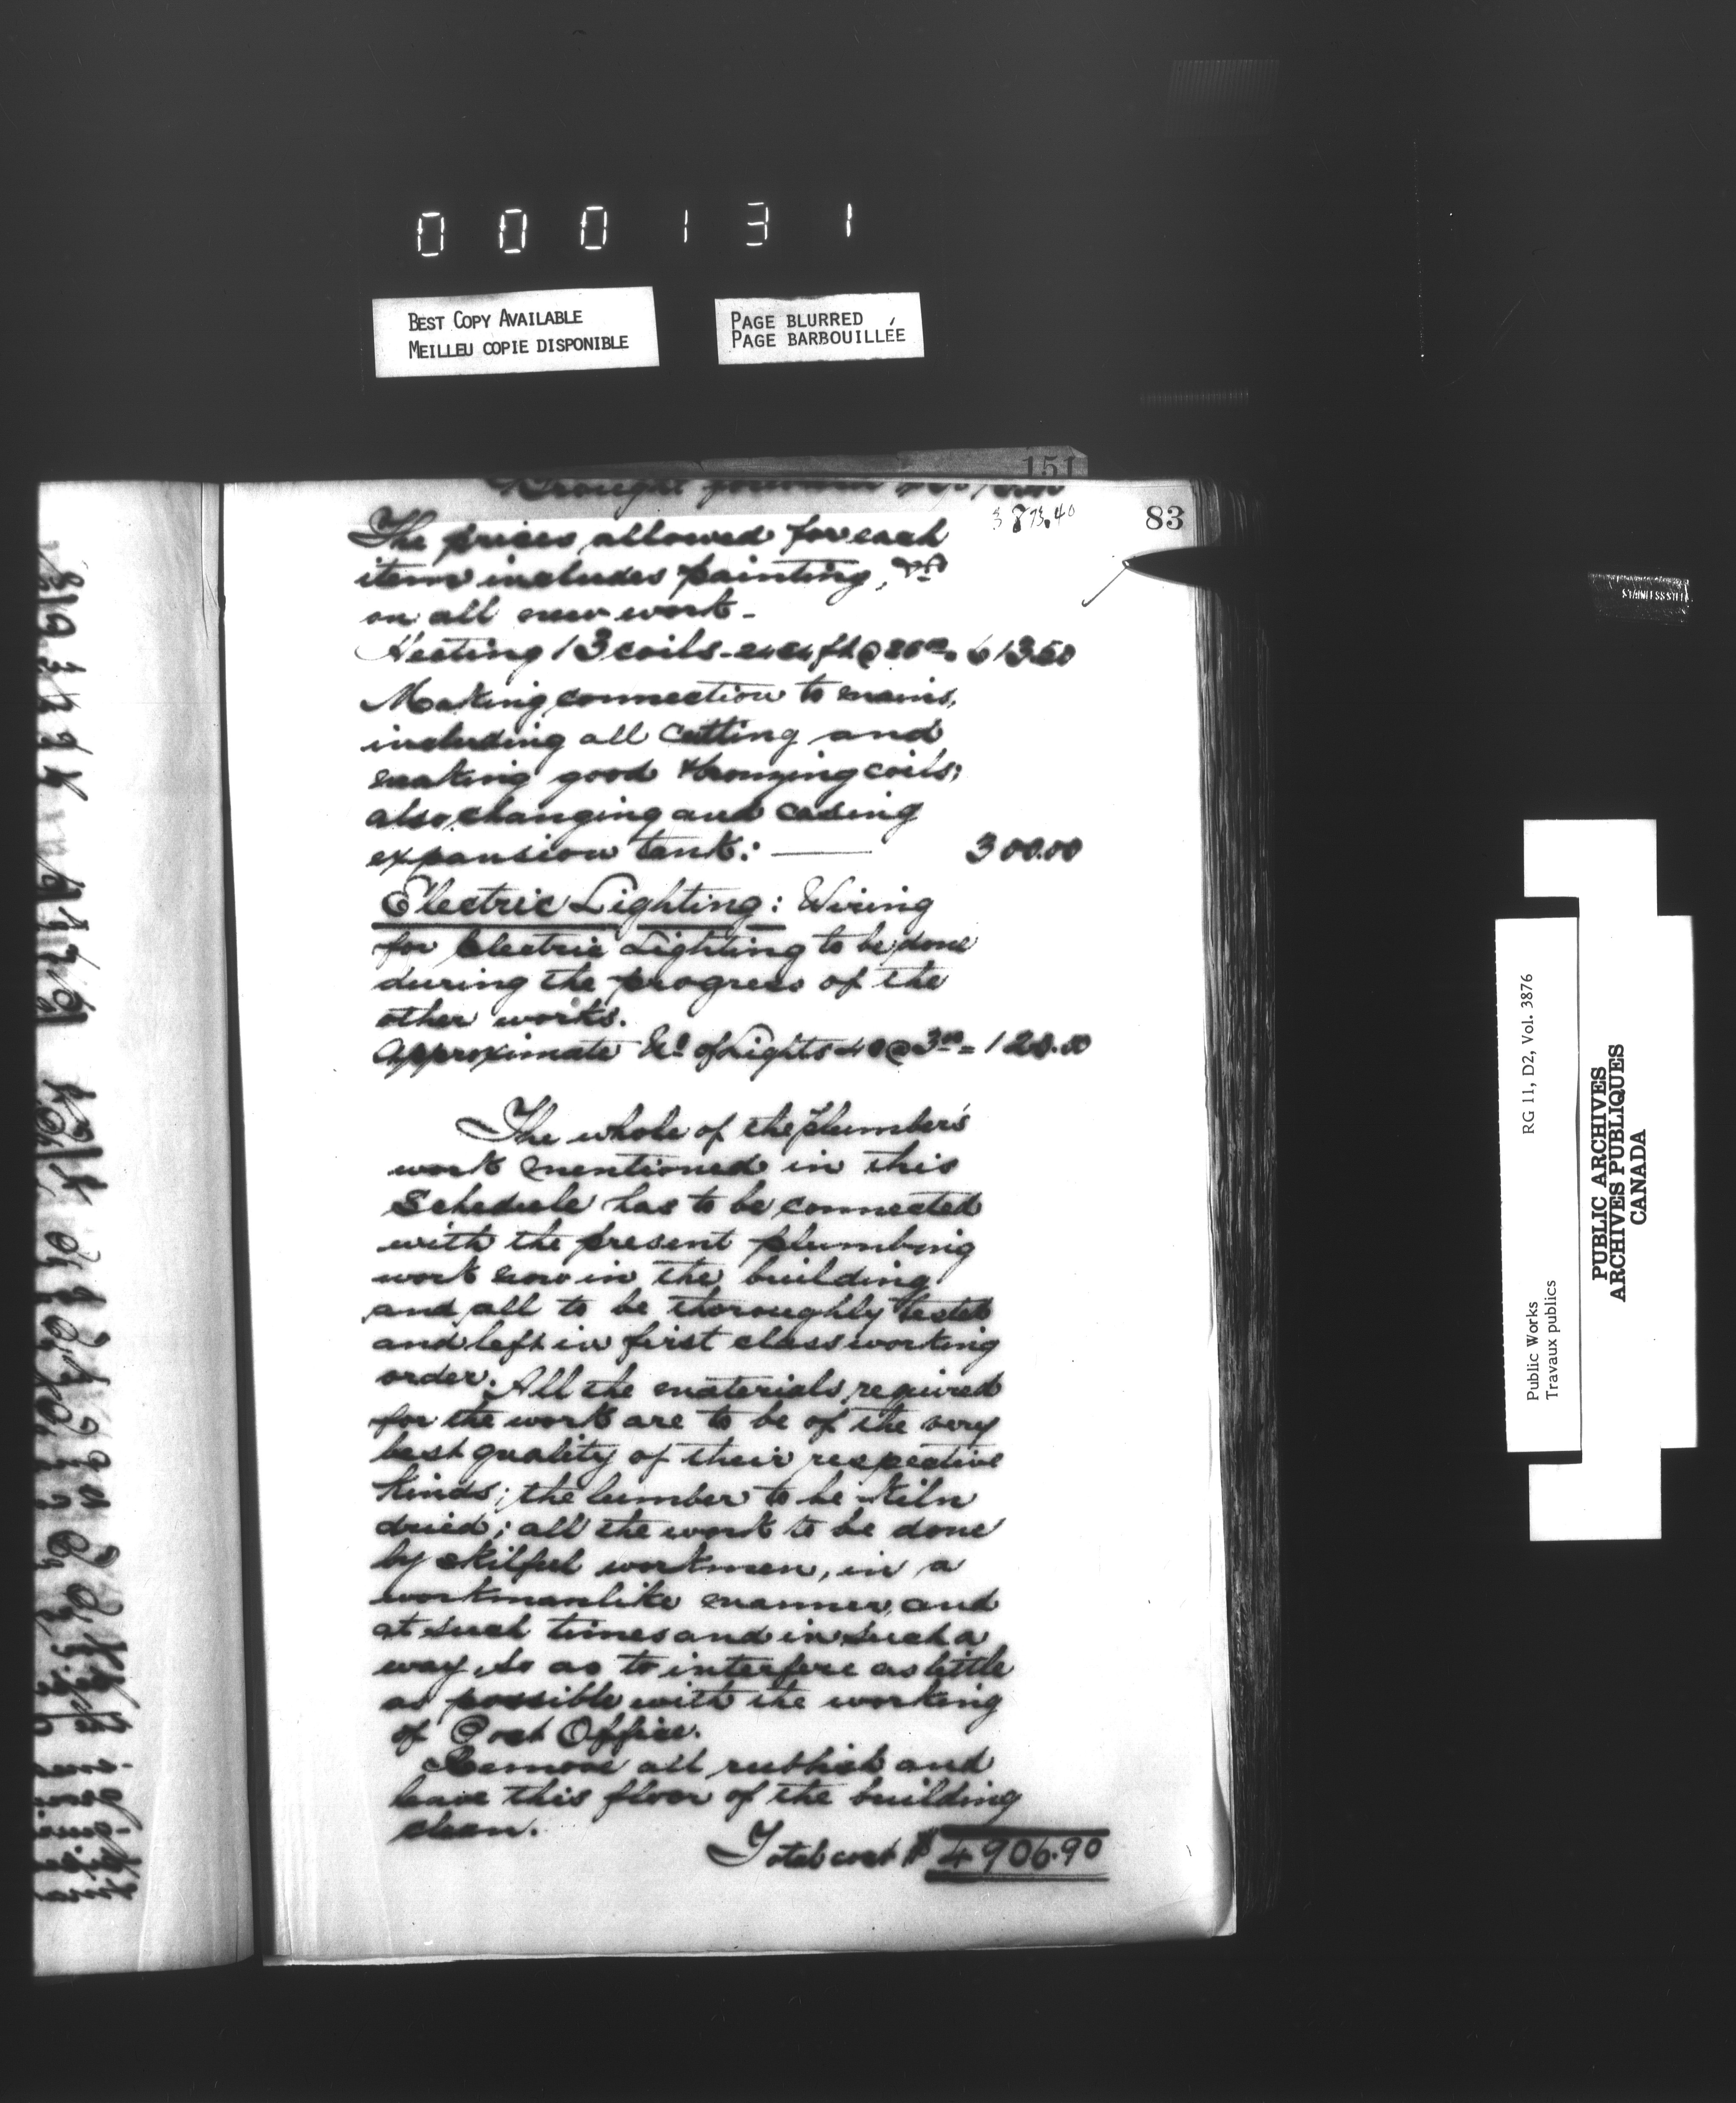 000131
BEST COPY AVAILABLE
MEILLEU COPIE DISPONIBLE
PAGE BLURRED
PAGE BARBOUILLÉE
151
Brought forward
3873.40
83
The prices allowed for each
item includes painting, &c
on all new work-
Heating 13 coils - ft @ 613.50
Making connection to mains,
including all cutting and
making good & bronzing coils;
also changing and casing
expansion tank: — 300.00
Electric Lighting: Wiring
for Electric Lighting to be done
during the progress of the
other works.
Approximate No of Lights 40 @ 3.00 = 120.00
The whole of the plumber's
work mentioned in this
Schedule has to be connected
with the present plumbing
work now in the building
and all to be thoroughly tested
and left in first class working
order. All the materials required
for the work are to be of the very
best quality of their respective
kinds; the lumber to be kiln
dried; all the work to be done
by skilful workmen, in a
workmanlike manner, and
at such times and in such a
way, so as to interfere as little
as possible with the working
of Post Office.
Remove all rubbish and
leave this floor of the building
clean.
Total cost $4906.90
STAINLESS STEEL
RG 11, D2, Vol. 3876
Public Works
Travaux publics
PUBLIC ARCHIVES
ARCHIVES PUBLIQUES
CANADA